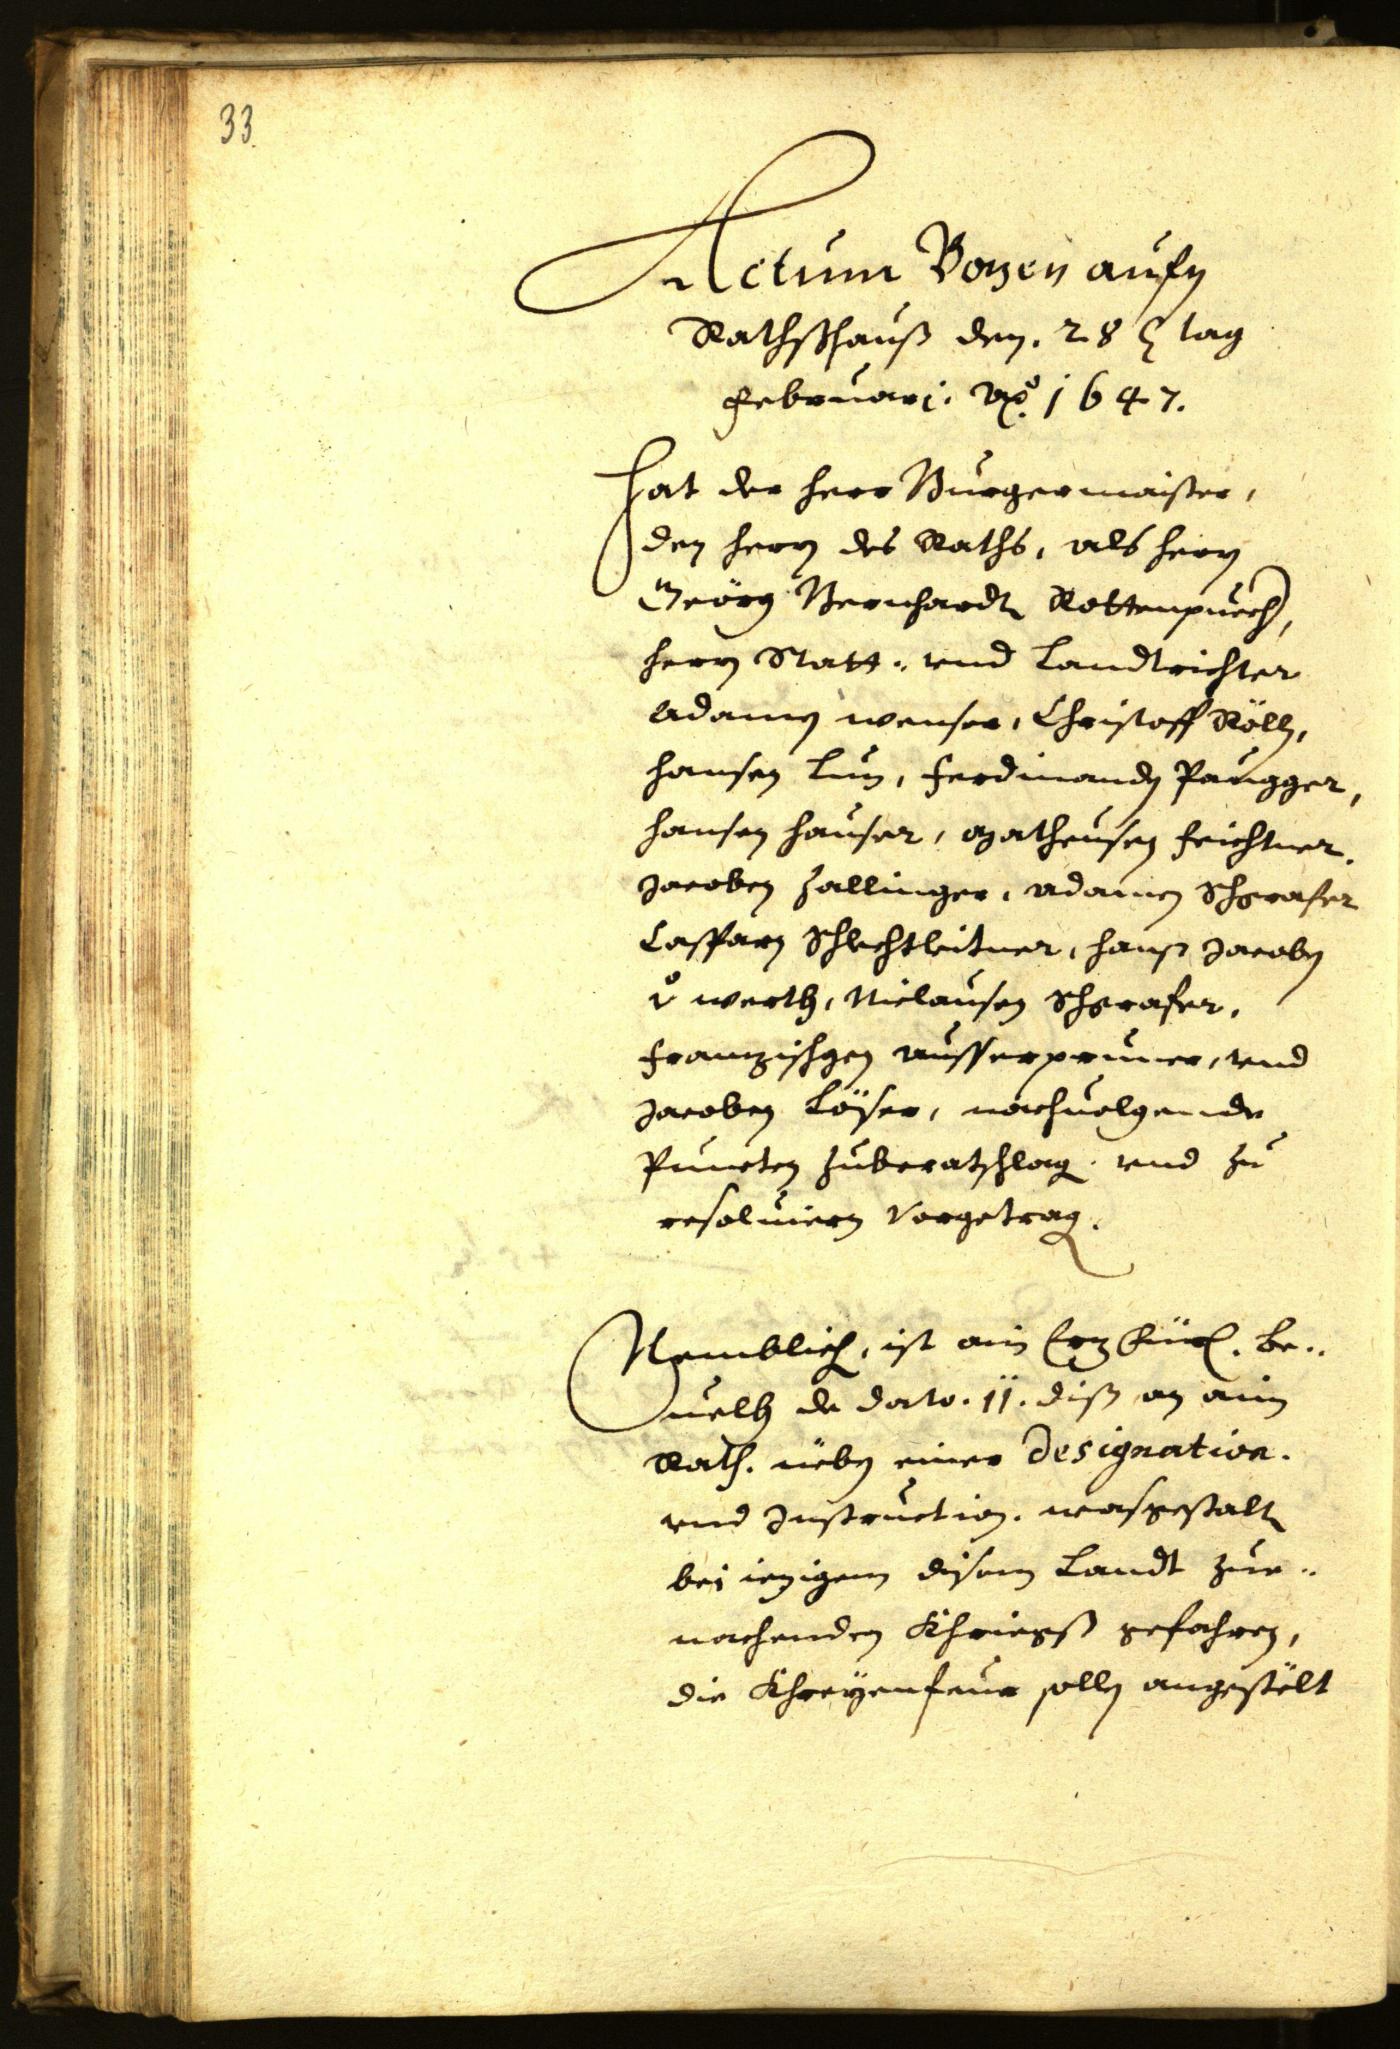 33
Actum Bozen aufn
Rathßhauß den. 28 tag
Februari. Ao. 1647.
Hat der herr Burgermaister,
den herrn des Raths, als herrn
Geörg Bernhardt Rottenpuech,
herrn Statt- und Landtrichter
Adamen wenser, Christoff Röll,
hansen Lun, Ferdinanden Paugger,
hansen hauser, Matheusen Feichtner.
Jacoben Zallinger, Adamen Schgrafer
Casparn Schlechtleitner, hanß Jacoben
v werth, Niclausen Schgrafer,
Franzischgen Ausserprunner, und
Jacoben Löser, nachuolgende
Puncten zuberatschlag. und zu
resoluiern vorgetrag.
Nemblich, ist ain Erz Fürl. Be-
uelh de dato. 11. diß an ain
Rath. neben einer Designation.
und Instruction. wasgestalt
bei iezigem disem Landt zue-
nachenden Khriegß gefahren,
die Khreyenfeur sollen angestölt